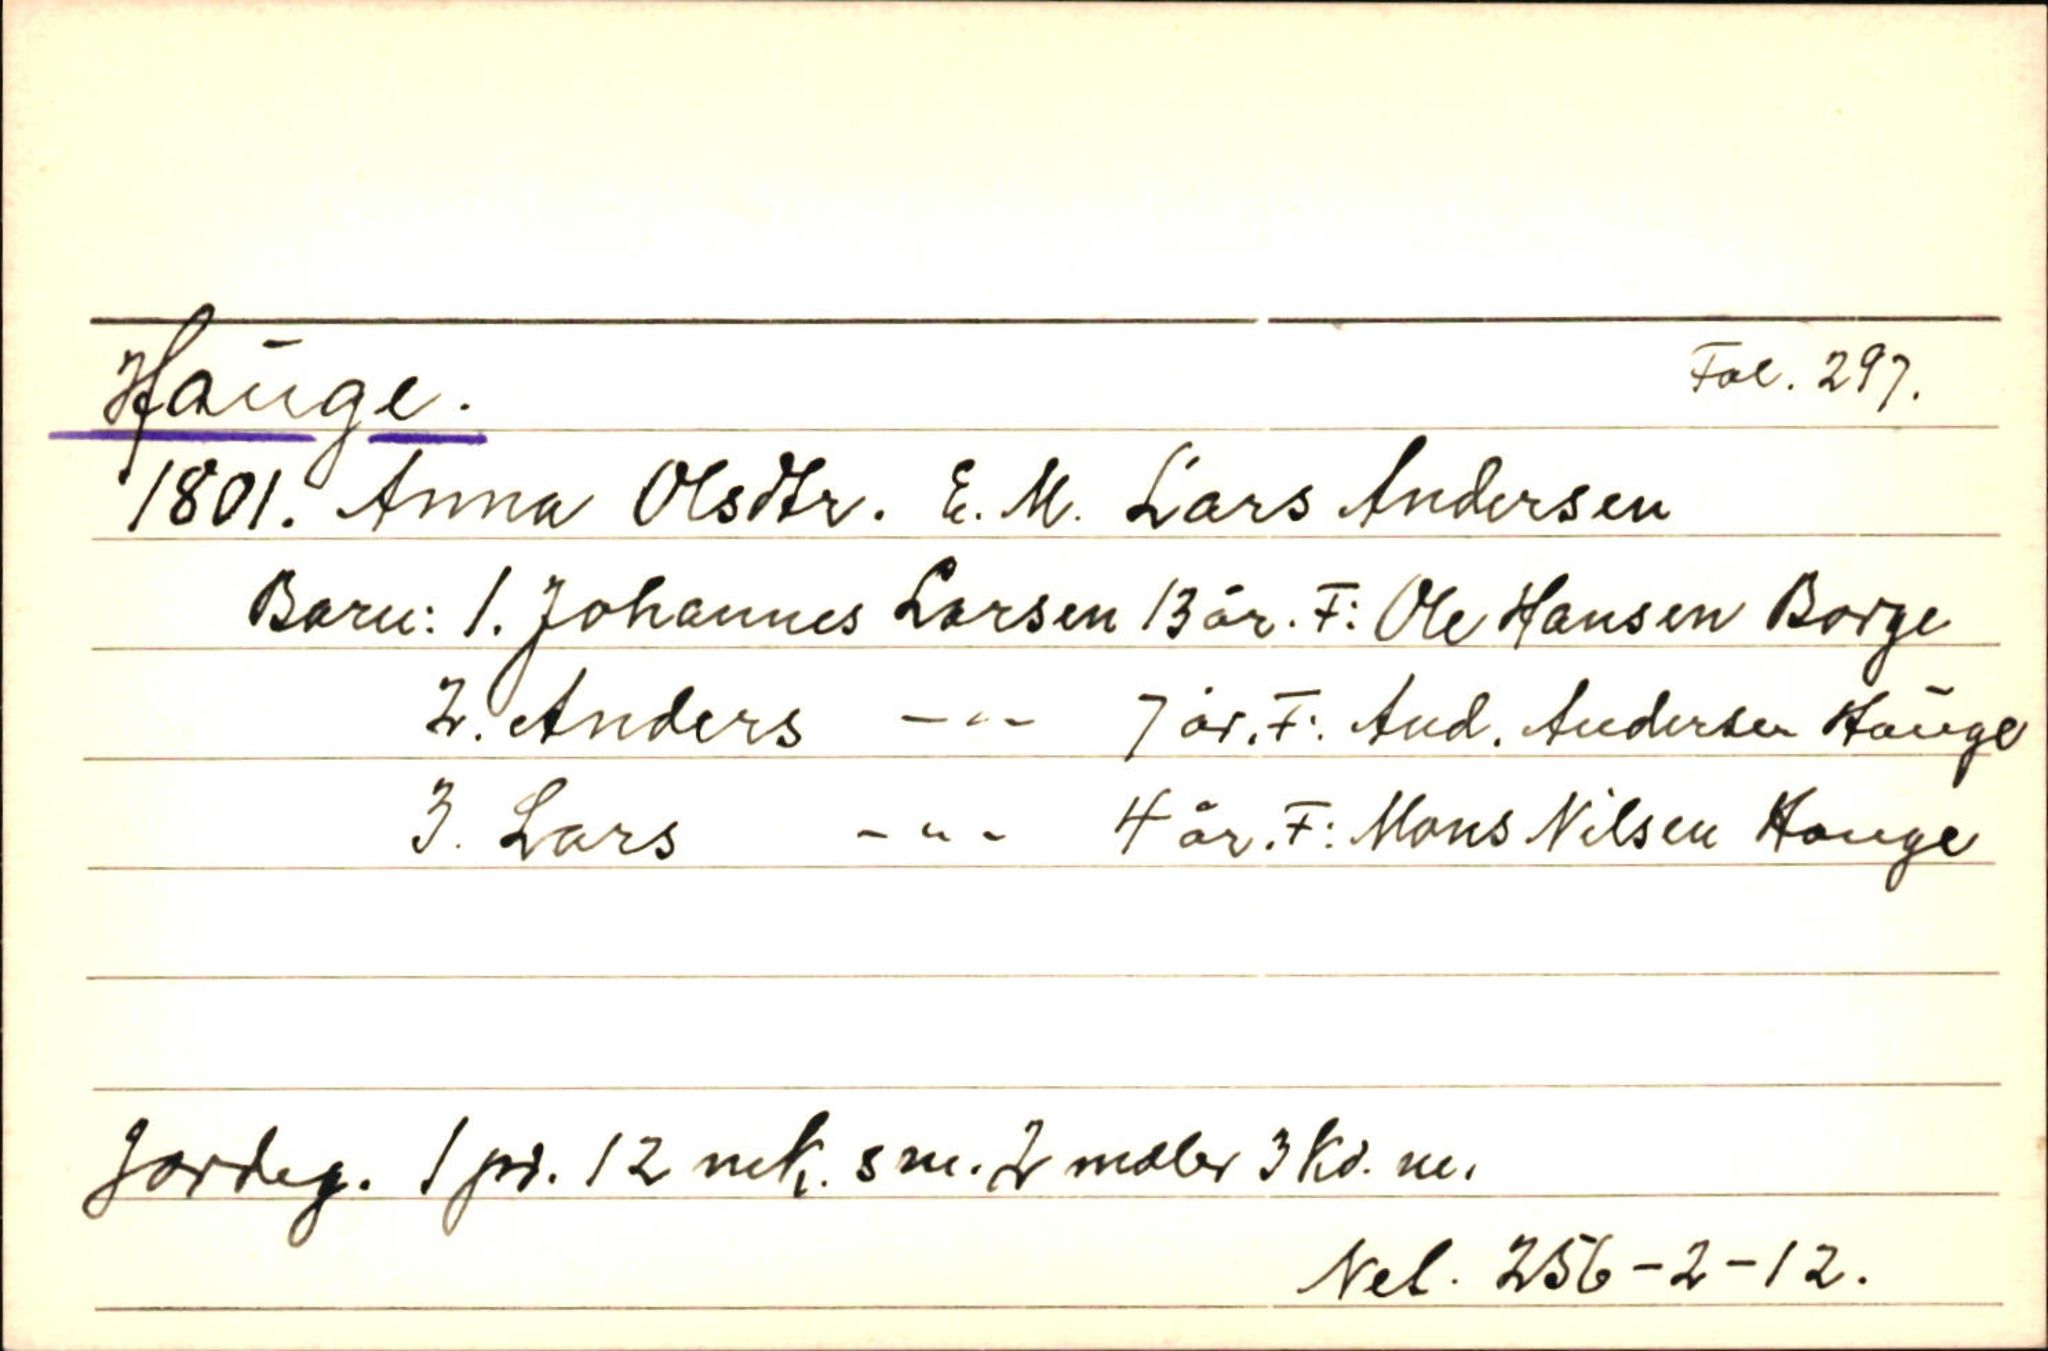 Hauge.
Fol. 297.
1801. Anna Olsdtr. E. M. Lars Andersen
Barn: 1. Johannes Larsen 13 år. F: Ole Hansen Borge
2. Anders -"- 7 år. F: And. Andersen Hauge
3. Lars -"- 4 år. F: Mons Nilsen Hauge
Jordeg. 1 pd. 12 mk. sm. 2 mæler 3 Kd. m.
Net. 256-2-12.